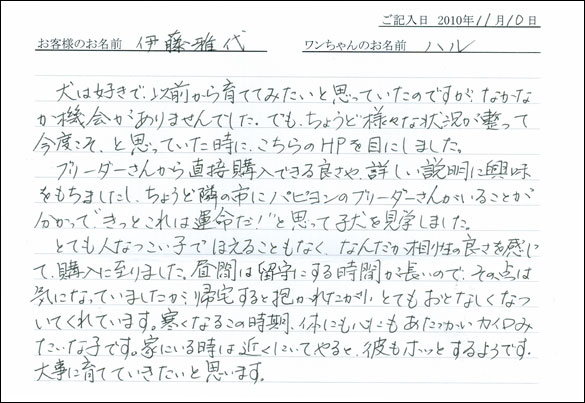 ご記入日 2010年11月10日
お客様のお名前 伊藤雅代 ワンちゃんのお名前 ハル
犬は好きで、以前から育ててみたいと思っていたのですが、なかな
か機会がありませんでした。でも、ちょうど様々な状況が整って
今度こそ、と思っていた時に、こちらのHPを目にしました。
ブリーダーさんから直接購入できる良さや、詳しい説明に興味
をもちましたし、ちょうど隣の市にパピヨンのブリーダーさんがいることが
分かって“きっとこれは運命だ！”と思って子犬を見学しました。
とても人なつこい子でほえることもなく、なんだか相性の良さを感じ
て、購入に至りました。昼間は留守にする時間が長いので、その点は
気になっていましたが、帰宅すると抱かれたがり、とてもおとなしくなつ
いてくれています。寒くなるこの時期、体にも心にもあたたかいカイロみ
たいな子です。家にいる時は近くにいてやると、彼もホッとするようです。
大事に育てていきたいと思います。